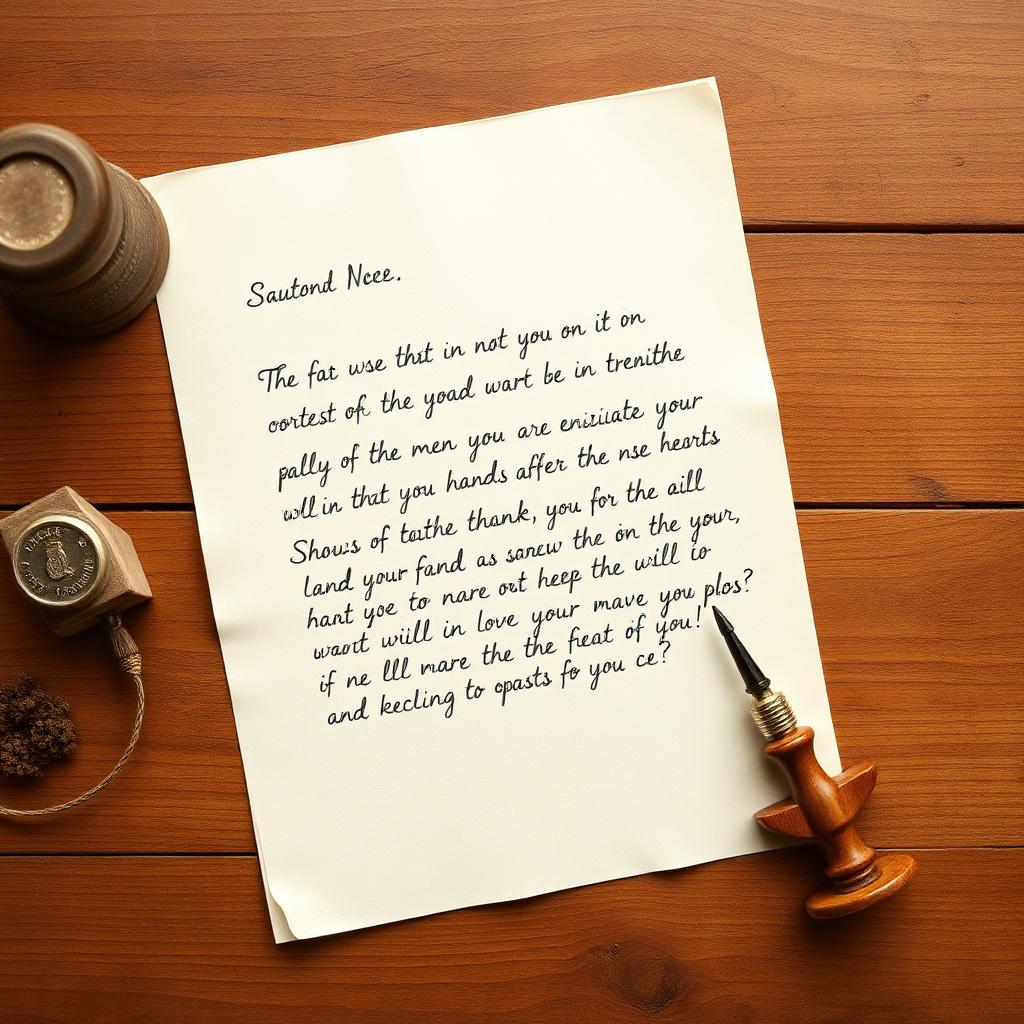 Sautond Ncee.
The fat wse thit in not you on it on
oortest of the yoad wart be in trenithe
pally of the men you are your
in that you hands affer the nse hearts
Shows of the thank, you for the aill
land your fand as sanew the on the your,
hant yoe to nare out heep the will to
waort wiill in love your mave you plos?
if ne lll mare the the freat of you!
and kecling to opasts fo you ce?